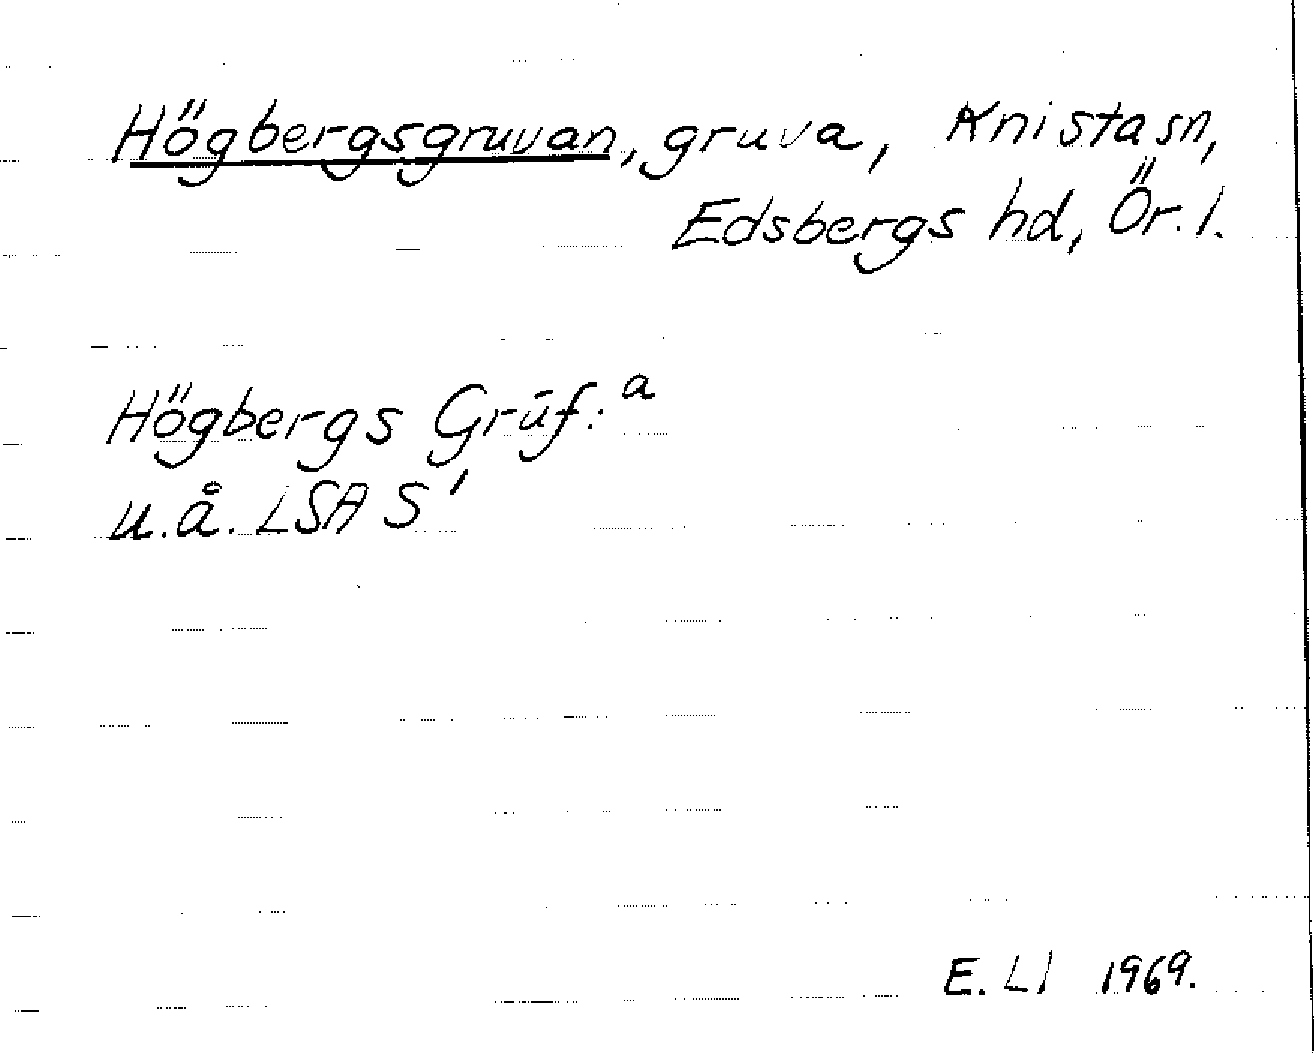 Högbergsgruvan, gruva, Knista sn,
Edsbergs hd, Ör. l.
Högbergs Grūf:ᵃ
u.å. LSA S'
E. Ll 1969.